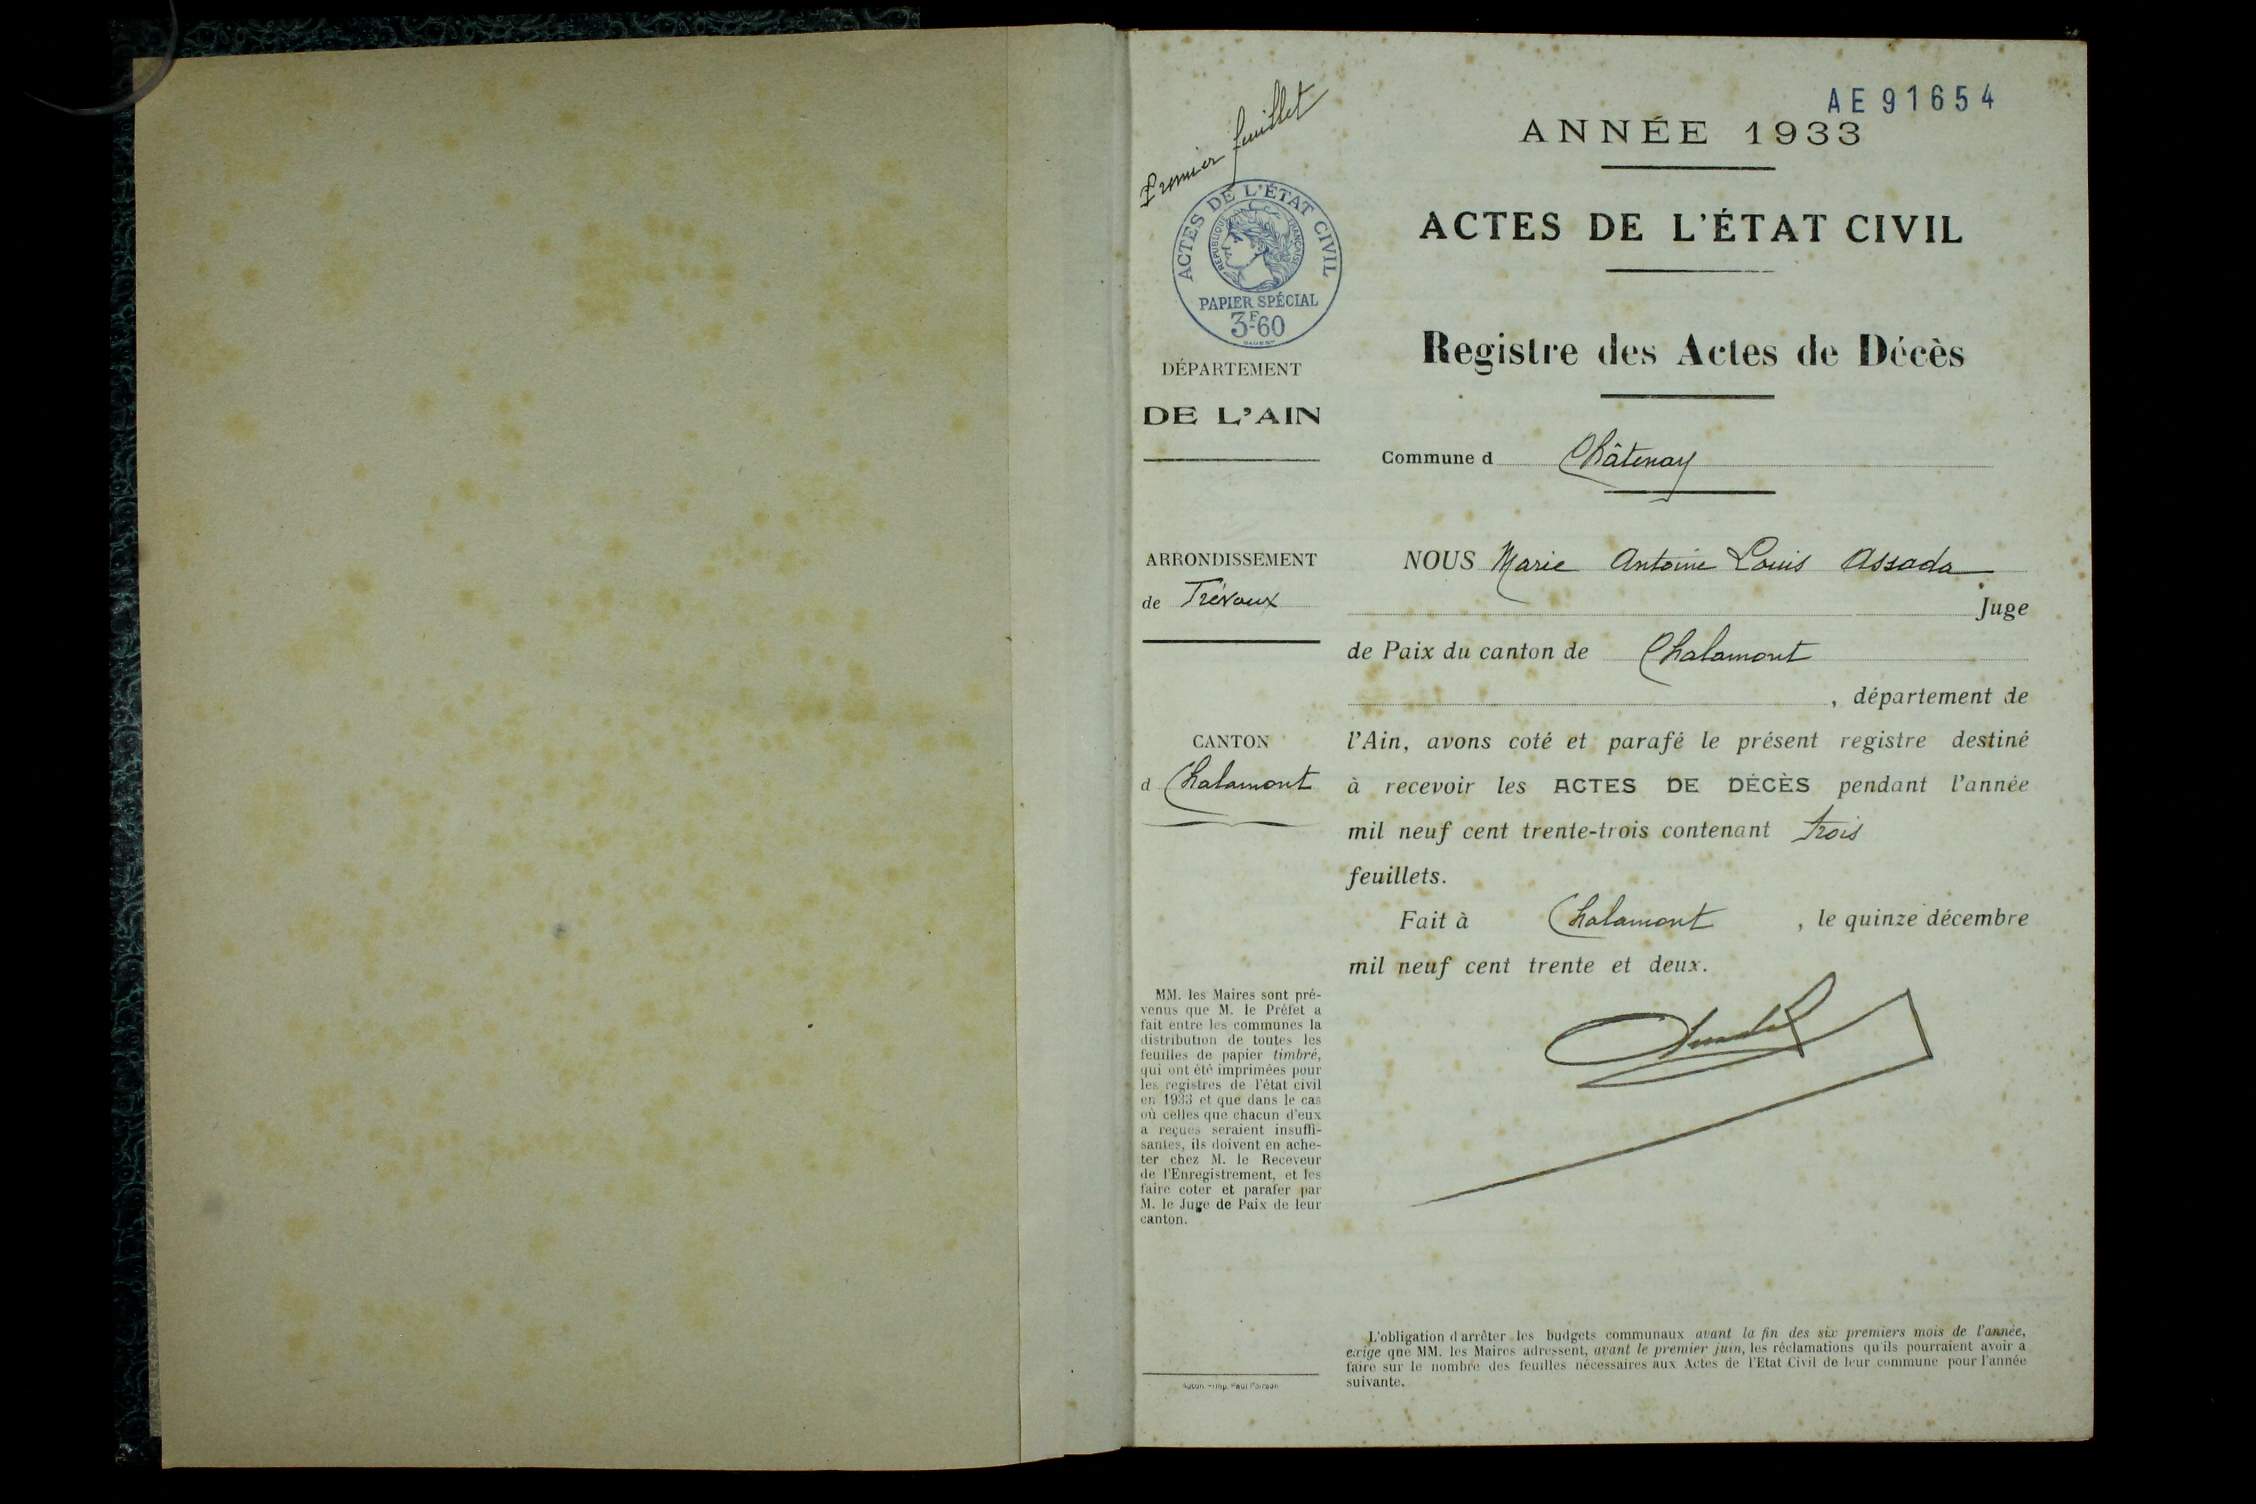 AE91654
Premier feuillet
ANNÉE 1933
ACTES DE L'ÉTAT CIVIL
RÉPUBLIQUE FRANÇAISE
PAPIER SPÉCIAL
3F.60
ACTES DE L'ÉTAT CIVIL
Registre des Actes de Décès
DÉPARTEMENT
DE L'AIN
Commune d Châtenay
ARRONDISSEMENT
de Trévoux
CANTON
d Chalamont
NOUS Marie Antoine Louis Assada
Juge
de Paix du canton de Chalamont
, département de
l'Ain, avons coté et parafé le présent registre destiné
à recevoir les ACTES DE DÉCÈS pendant l'année
mil neuf cent trente-trois contenant trois
feuillets.
Fait à Chalamont , le quinze décembre
mil neuf cent trente et deux.
MM. les Maires sont pré-
venus que M. le Préfet a
fait entre les communes la
distribution de toutes les
feuilles de papier timbré,
qui ont été imprimées pour
les registres de l'état civil
en 1933 et que dans le cas
où celles que chacun d'eux
a reçues seraient insuffi-
santes, ils doivent en ache-
ter chez M. le Receveur
de l'Enregistrement, et les
faire coter et parafer par
M. le Juge de Paix de leur
canton.
L'obligation d'arrêter les budgets communaux avant la fin des six premiers mois de l'année,
exige que MM. les Maires adressent, avant le premier juin, les réclamations qu'ils pourraient avoir à
faire sur le nombre des feuilles nécessaires aux Actes de l'Etat Civil de leur commune pour l'année
suivante.